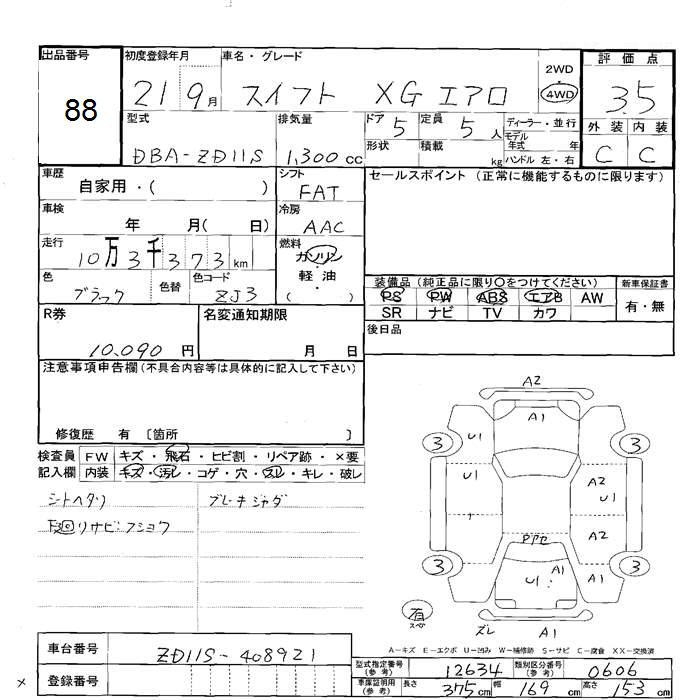 出品番号 初度登録年月 車名・グレード 2WD 評価点
88 21 9月 スイフト XG エアロ 4WD 3.5
型式 排気量 ドア 5 定員 5人 ディーラー・並行 外装 内装
DBA-ZD11S 1,300cc 形状 積載 kg モデル年式 年 ハンドル 左・右 C C
車歴 自家用・( ) シフト FAT セールスポイント (正常に機能するものに限ります)
車検 年 月( 日) 冷房 AAC
走行 10万3千373km 燃料 ガソリン・軽油 ( )
色 ブラック 色替 色コード ZJ3
装備品 (純正品に限り○をつけてください) 新車保証書
PS PW ABS エアB AW 有・無
SR ナビ TV カワ
R券 10,090円 名変通知期限 月 日 後日品
注意事項申告欄(不具合内容等は具体的に記入して下さい)
修復歴 有 〔箇所 〕
検査員 FW キズ・飛石・ヒビ割・リペア跡・×要
記入欄 内装 キズ・汚レ・コゲ・穴・スレ・キレ・破レ
シトヘタリ ブレーキジャダ
下回リサビ・フショク
A2
A1
U1
3 3
U1 A2
U1
A2
3 3
A1
U1 A1
有
スペ
ズレ A1
A-キズ E-エクボ U-凹み W-補修跡 S-サビ C-腐食 XX-交換済
車台番号 ZD11S-408921
登録番号
型式指定番号(参考) 12634 類別区分番号(参考) 0606
車庫証明用(参考) 長さ 375cm 幅 169cm 高さ 153cm
×